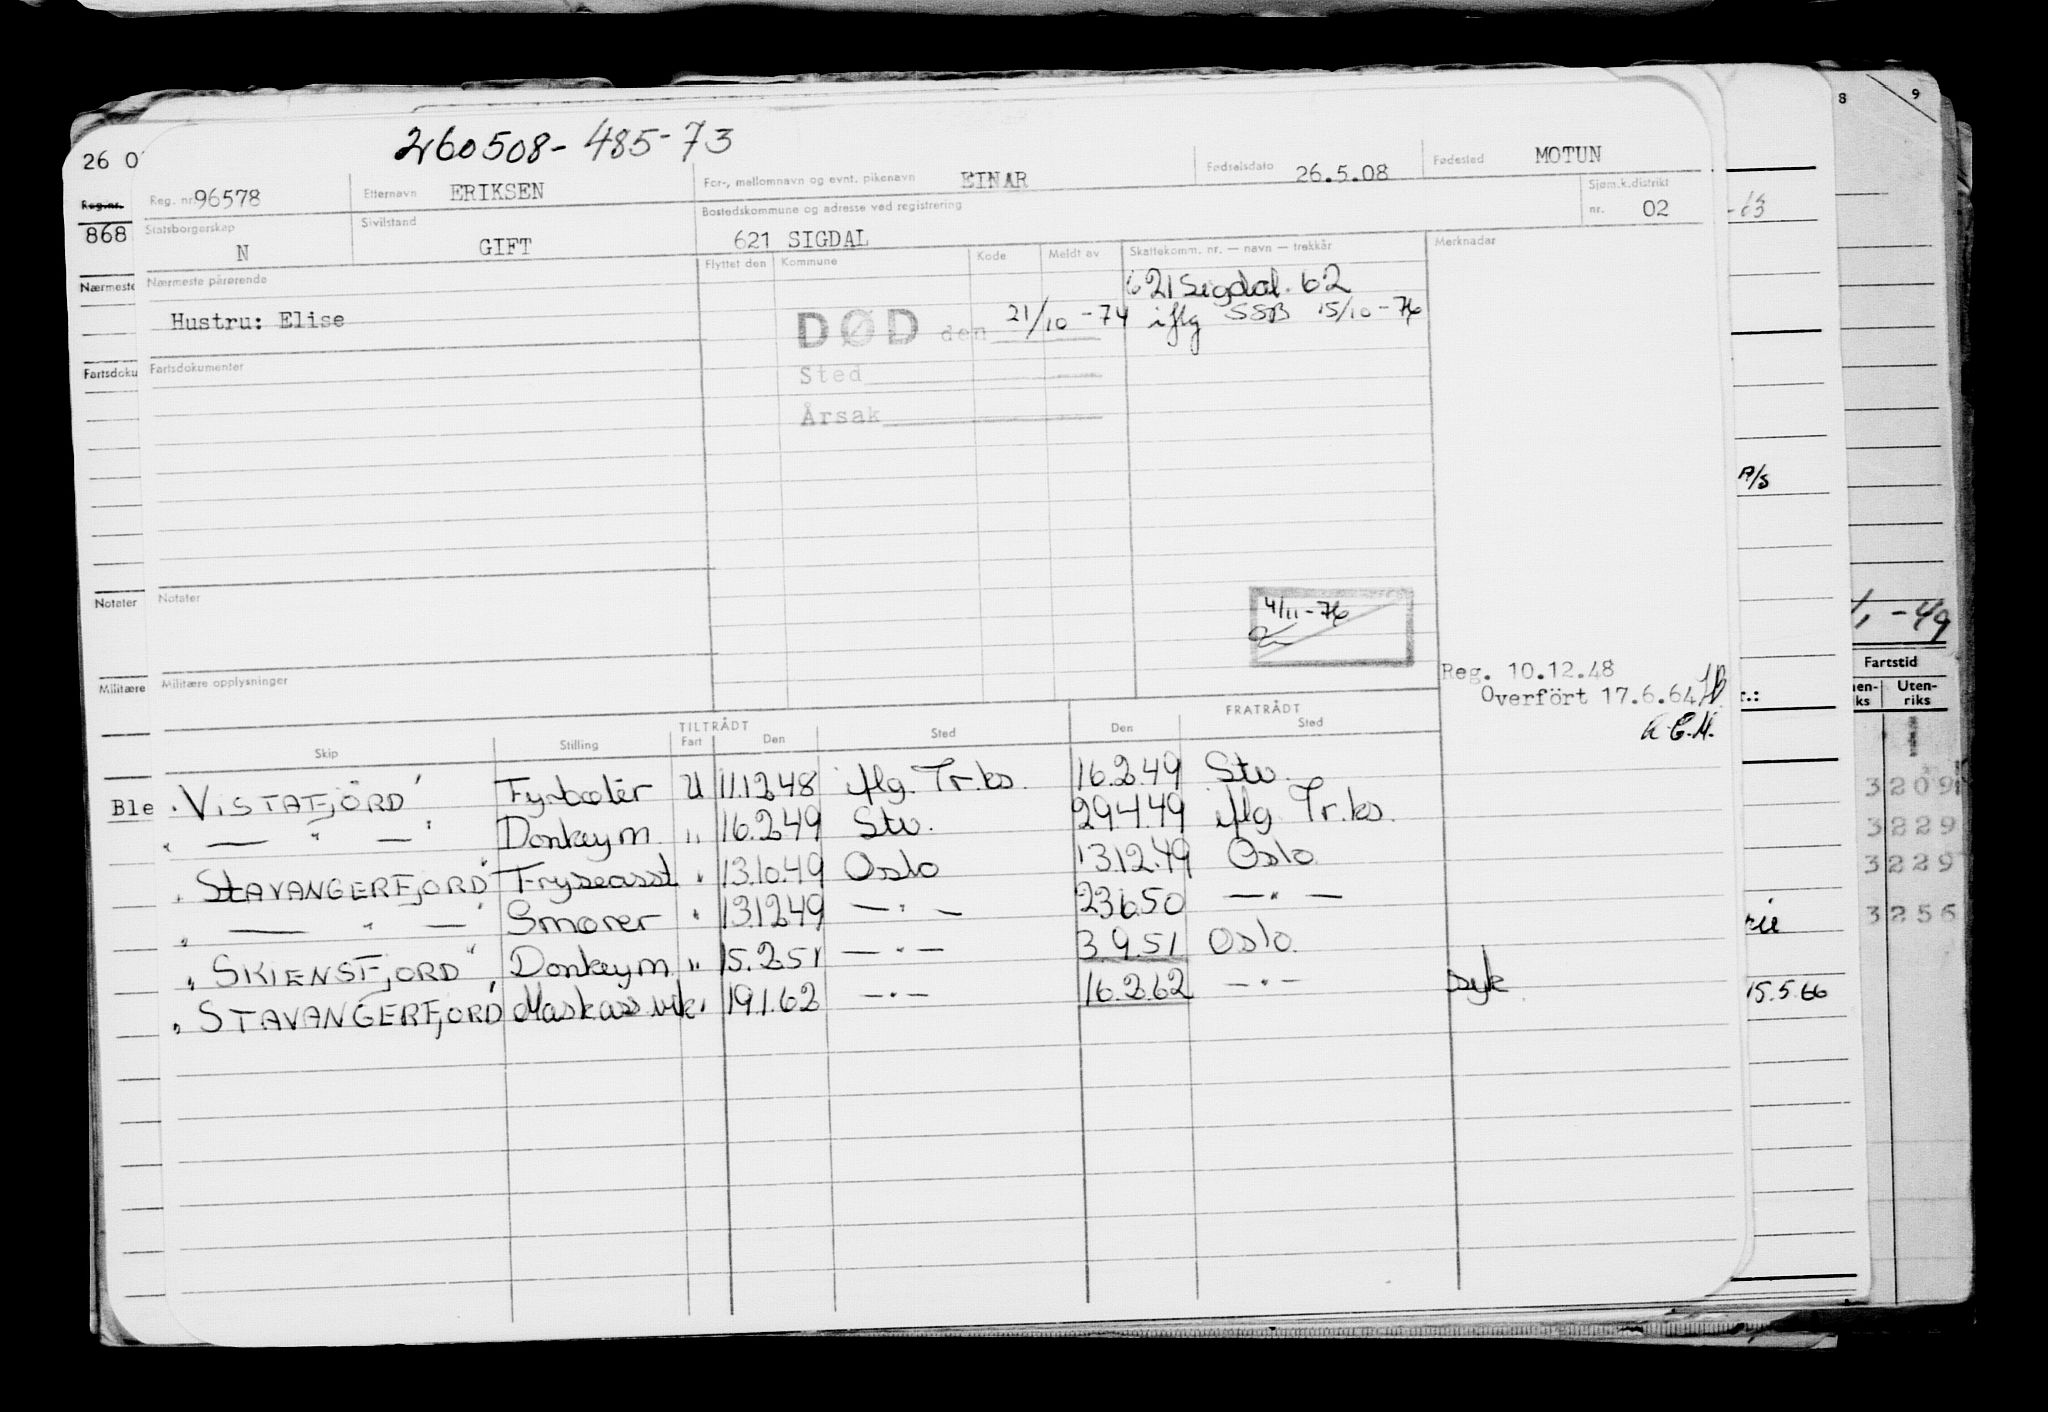 260508-485-73
Reg. nr. 96578 Etternavn ERIKSEN For-, mellomnavn og evnt. pikenavn EINAR Fødselsdato 26.5.08 Fødested MOTUN
Statsborgerskap N Sivilstand GIFT Bostedskommune og adresse ved registrering 621 SIGDAL Sjøm.k.distrikt nr. 02
Nærmeste pårørende Flyttet den Kommune Kode Meldt av Skattekomm. nr. — navn — trekkår Merknader
621 Sigdal. 62
Hustru: Elise DØD den 21/10-74 iflg SSB 15/10-76
Fartsdokumenter Sted
Årsak
Notater
4/11-76
Militære opplysninger
Reg. 10.12.48
Overfört 17.6.64
TILTRÅDT FRATRÅDT
Skip Stilling Fart Den Sted Den Sted
" VISTAFJORD " Fyrbøter U 11.12.48 iflg. Tr.ks. 16.2.49 Stv.
" — " — " Donkeym. " 16.2.49 Stv. 29.4.49 iflg. Tr.ks.
" STAVANGERFJORD " Fryseasst " 13.10.49 Oslo 13.12.49 Oslo
" — " — " Smører " 13.12.49 — " — 23.6.50 — " —
" SKIENSFJORD " Donkeym. " 15.2.51 — " — 3.9.51 Oslo.
" STAVANGERFJORD " Maskass.vik " 19.1.62 — " — 16.2.62 — " — syk
26 0
Reg.nr.
868
Nærmeste
Fartsdoku
Notater
Militære
Ble
8
9
-63
A/S
-49
Fartstid
Uten-
riks
3209
3229
3229
3256
15.5.66